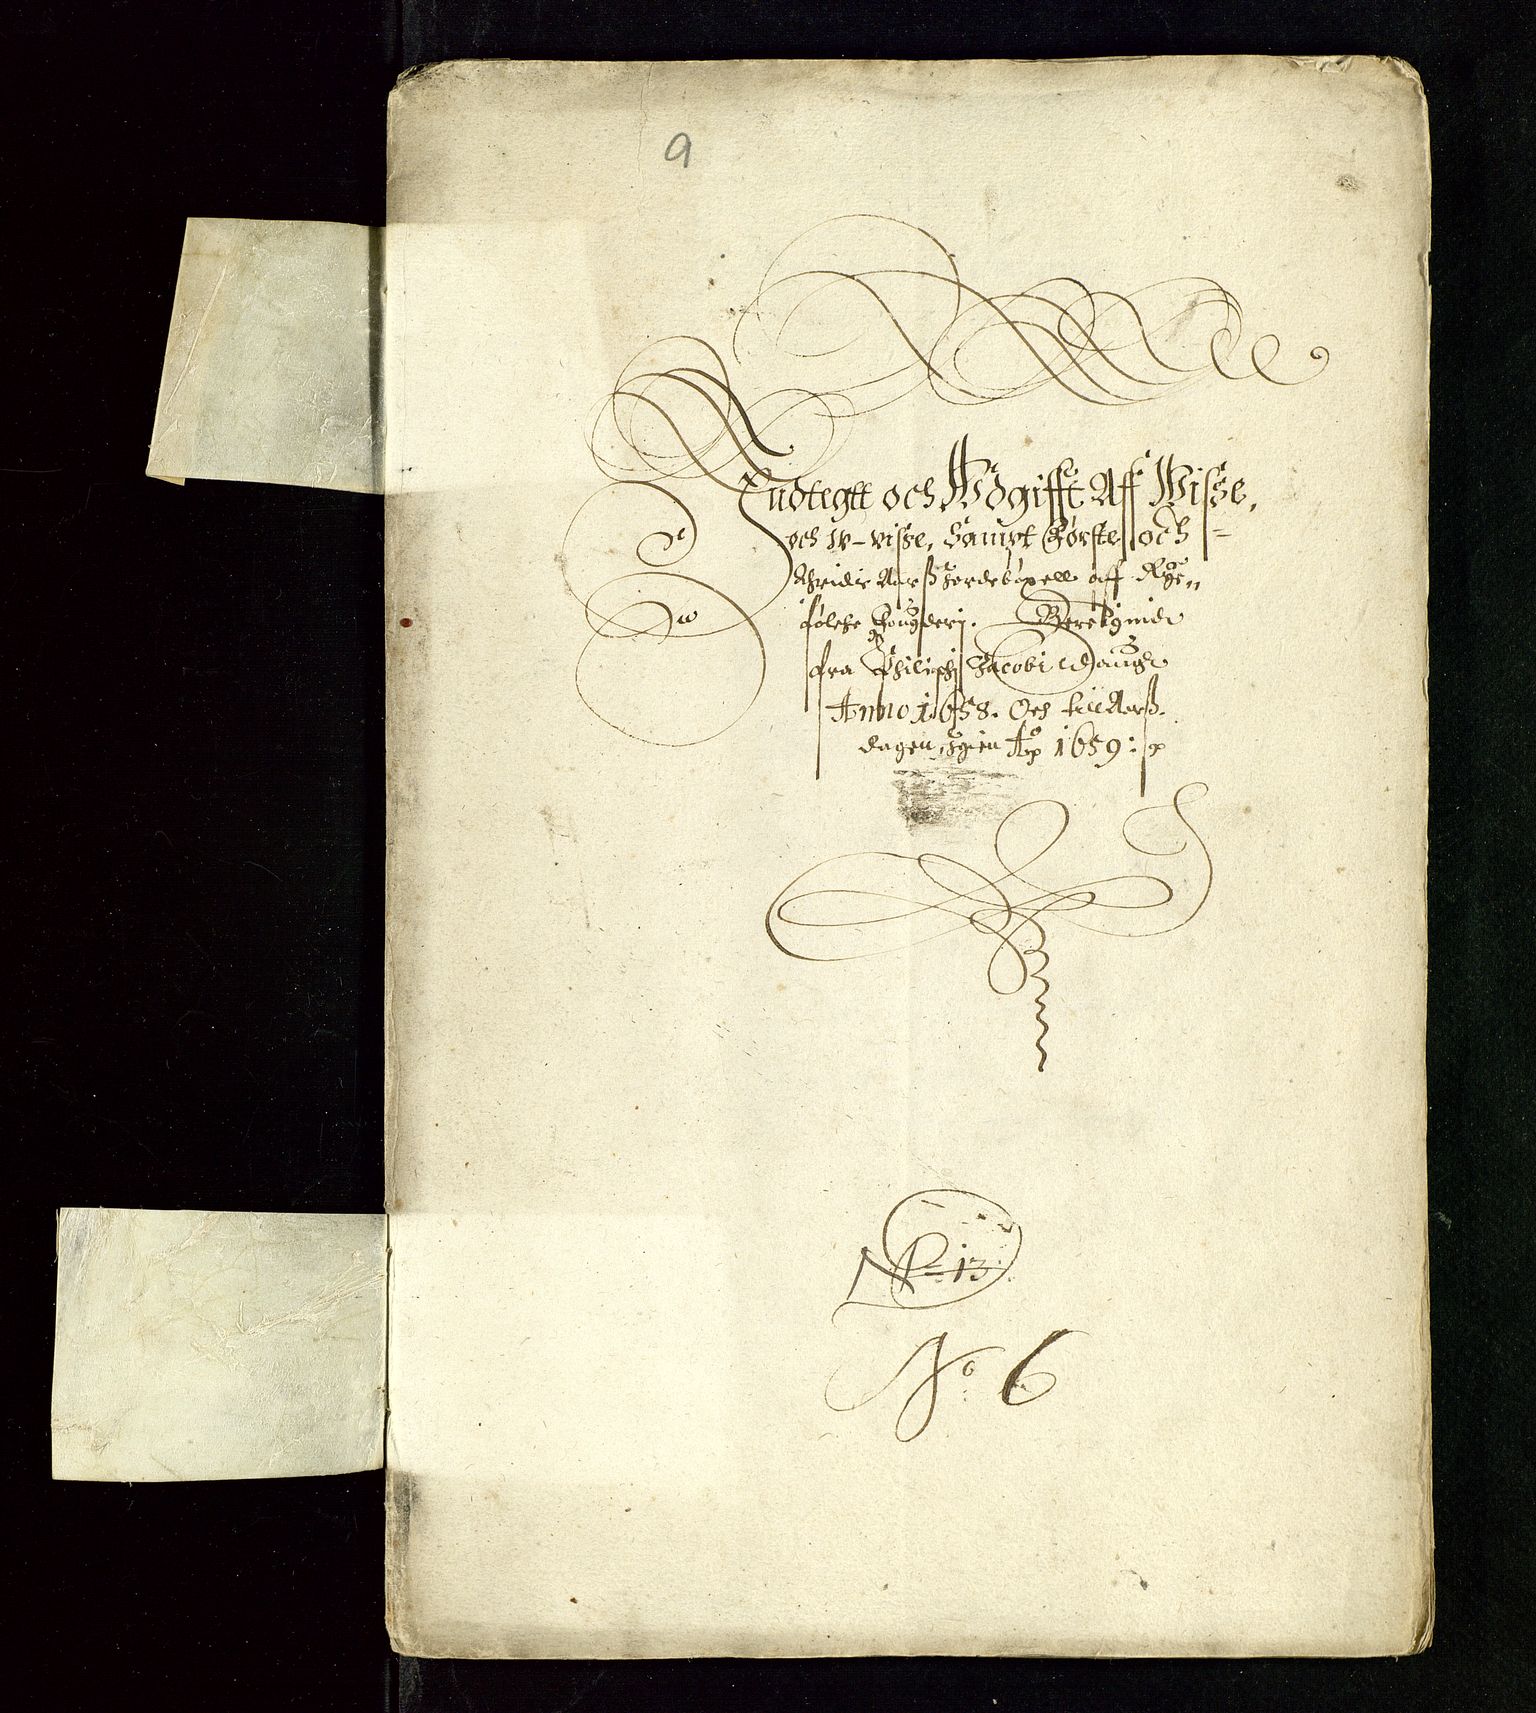 9
Indtegtt och Wdgifft Aff Wisse,
och W-visse, Sampt Første och
Thridie Aars Jordebøgell aff Ryge„
følche Fougderj. Beregnidt
fra Philippi Jacobi Daugh
Anno 1658. Och till Aarß
dagen Igien Aō 1659:
No 13
No 6